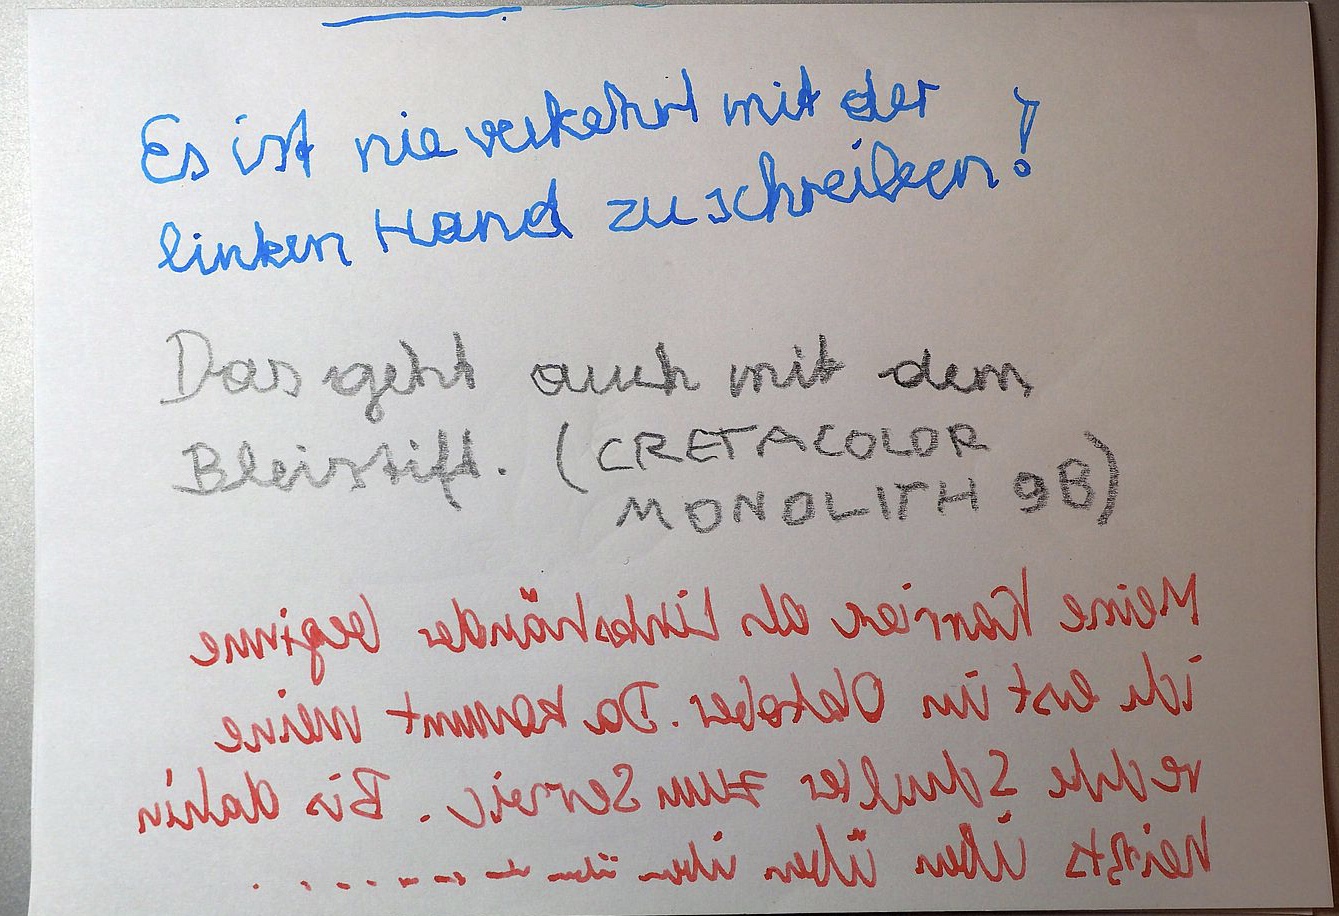 Es ist nie verkehrt mit der
linken Hand zu schreiben!
Das geht auch mit dem
Bleistift. (CRETACOLOR
MONOLITH 9B)
Meine Karriere als Linkshänder beginne
ich erst im Oktober. Da kommt meine
rechte Schulter zum Service. Bis dahin
heißts üben üben üben üben üben